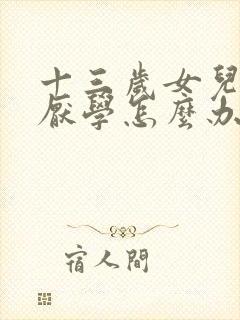 十三歲女兒
厭學怎麼办
宿人間